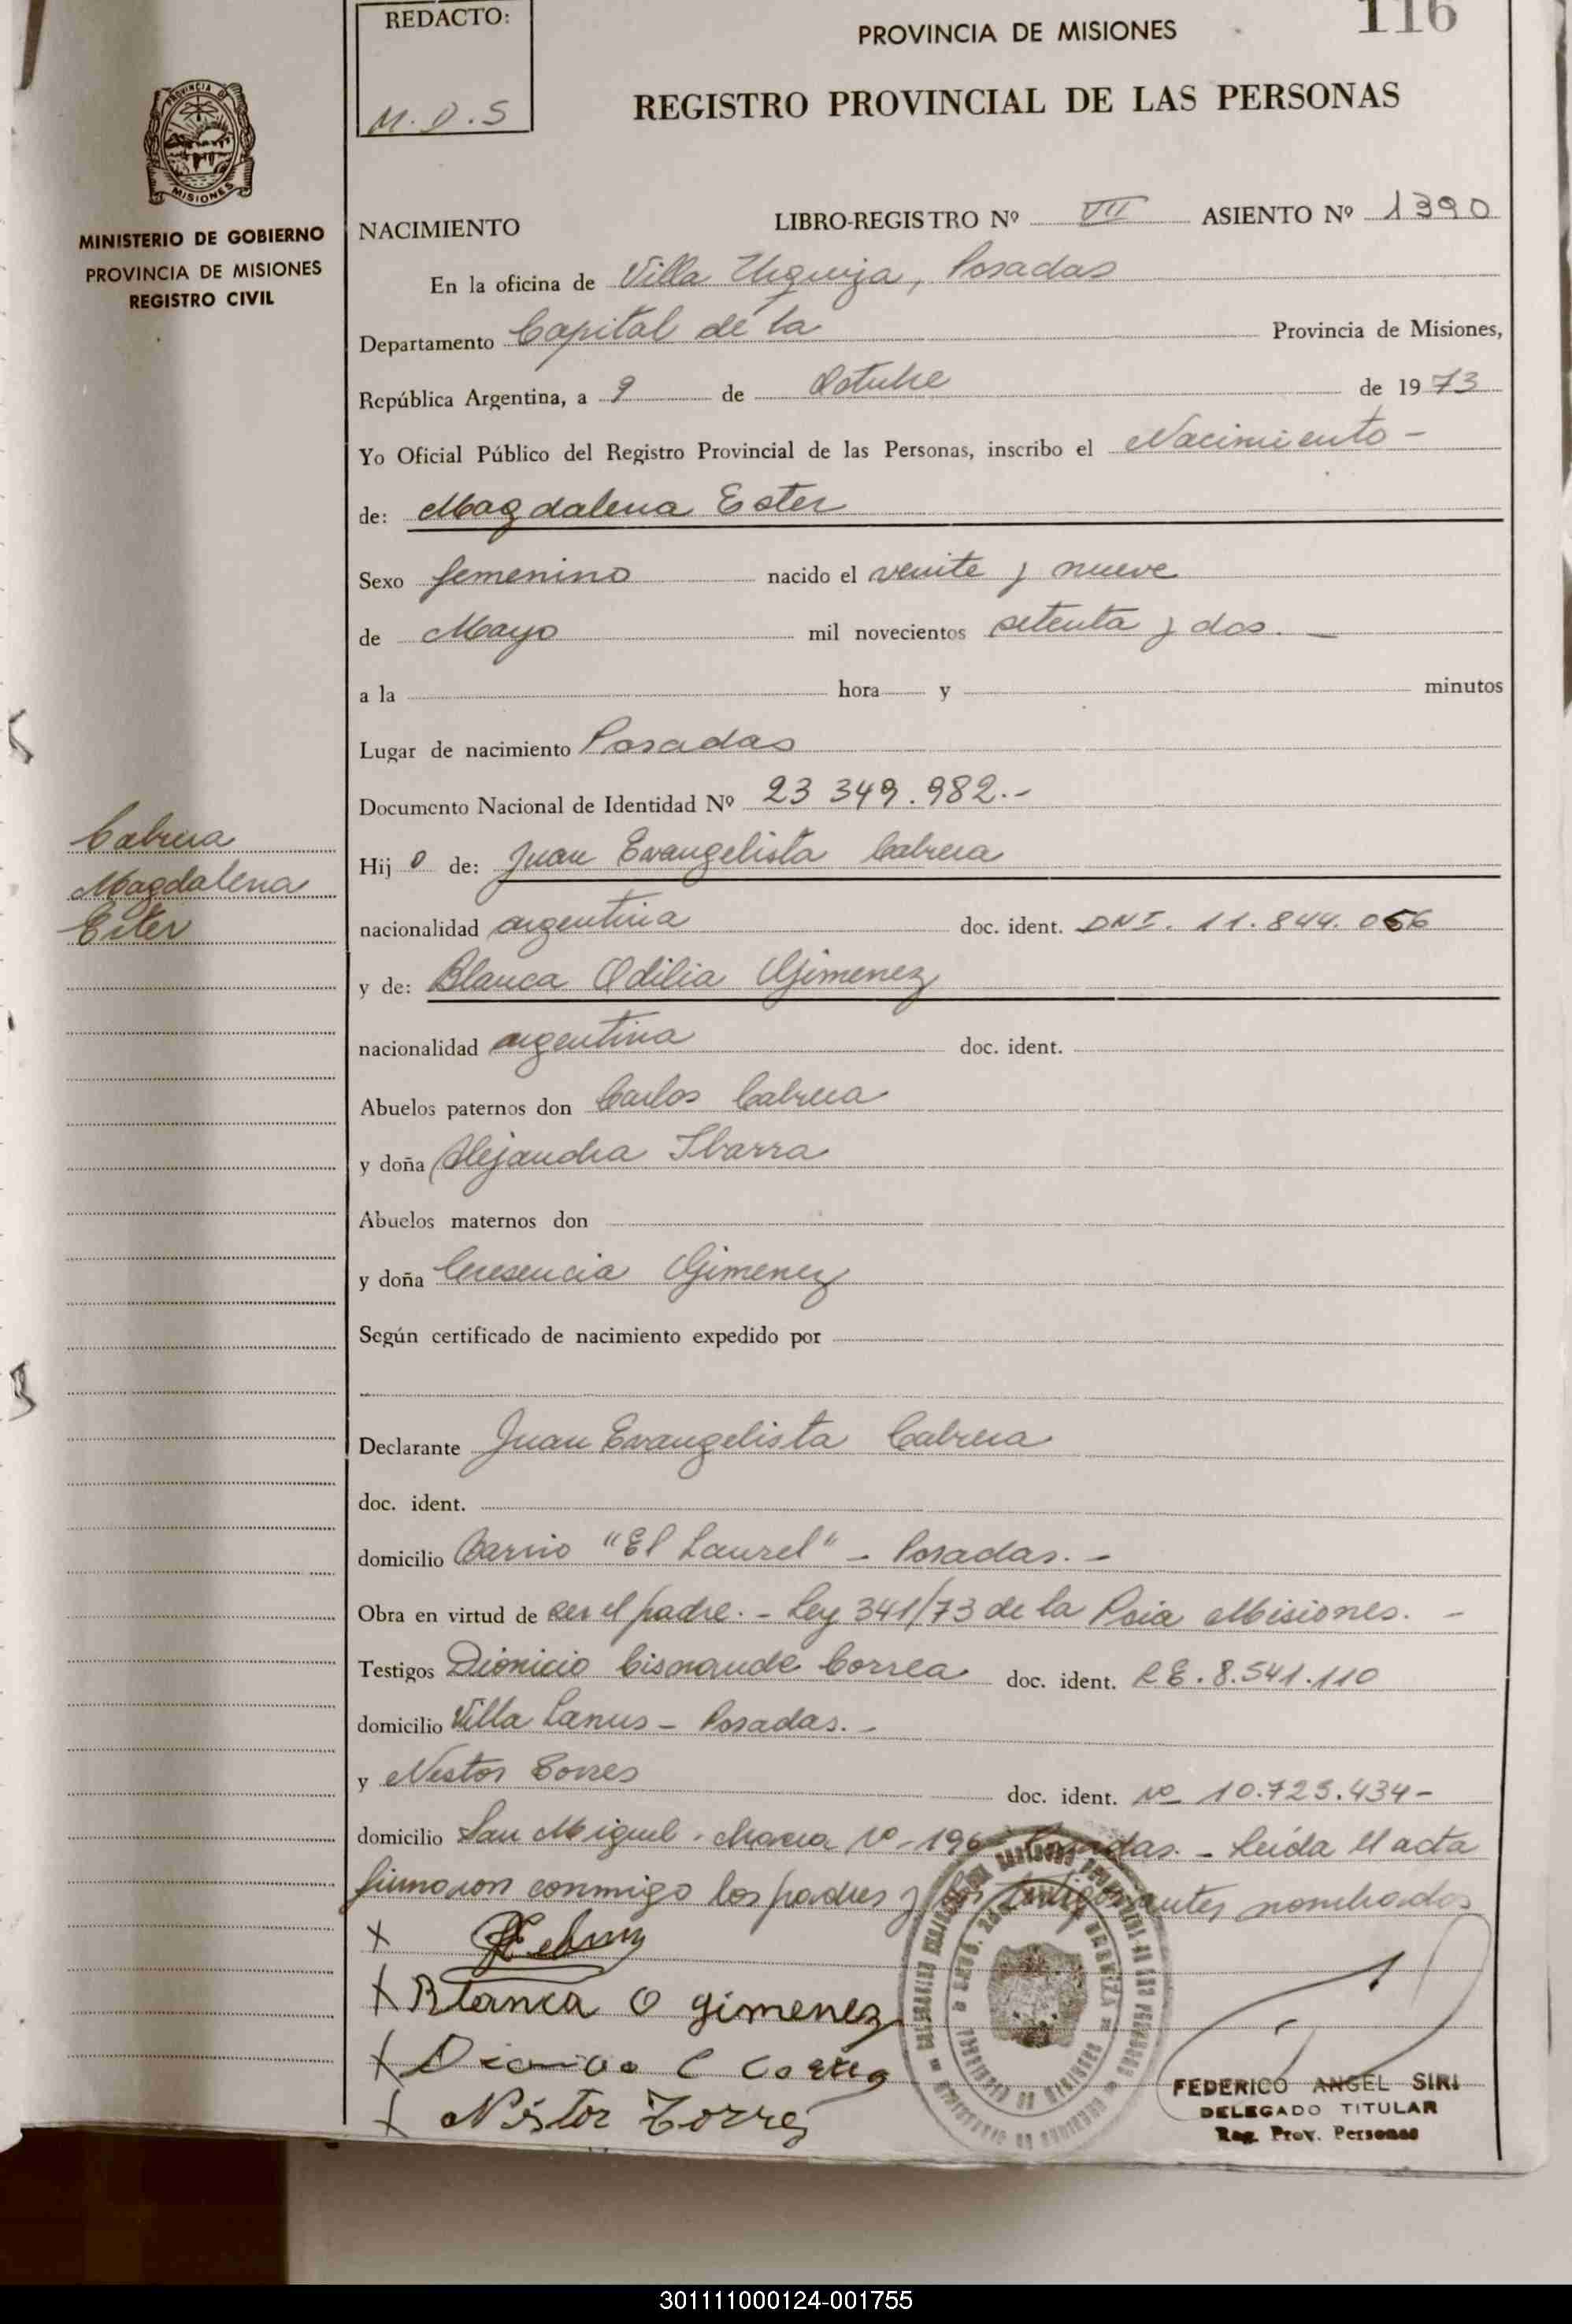 REDACTO:
M. D. S
PROVINCIA DE MISIONES
116
REGISTRO PROVINCIAL DE LAS PERSONAS
PROVINCIA D
MISIONES
MINISTERIO DE GOBIERNO
PROVINCIA DE MISIONES
REGISTRO CIVIL
NACIMIENTO LIBRO-REGISTRO Nº VII ASIENTO Nº 1390
En la oficina de Villa Urquiza, Posadas
Departamento Capital de la Provincia de Misiones,
República Argentina, a 9 de Octubre de 1973
Yo Oficial Público del Registro Provincial de las Personas, inscribo el Nacimiento -
de: Magdalena Ester
Sexo femenino nacido el veinte y nueve
de Mayo mil novecientos setenta y dos. -
a la hora y minutos
Lugar de nacimiento Posadas
Documento Nacional de Identidad Nº 23 349.982.-
Cabrera
Magdalena
Ester
Hij o de: Juan Evangelista Cabrera
nacionalidad argentina doc. ident. DNI. 11.844.056
y de: Blanca Odilia Gimenez
nacionalidad argentina doc. ident.
Abuelos paternos don Carlos Cabrera
y doña Alejandra Ibarra
Abuelos maternos don
y doña Cresencia Gimenez
Según certificado de nacimiento expedido por
Declarante Juan Evangelista Cabrera
doc. ident.
domicilio Barrio "El Laurel" - Posadas. -
Obra en virtud de ser el padre. - Ley 341/73 de la Pcia Misiones. -
Testigos Dionicio Correa doc. ident. L.E. 8.541.110
domicilio Villa Lanus - Posadas. -
y Nestor Torres doc. ident. Nº 10.725.434-
domicilio San Miguel - chacra Nº - 196 Posadas. - Leída el acta
firmaron conmigo los padres y los testigos antes nombrados
X
X Blanca O gimenez
X Dionicio C Correa
X Néstor Torres
FEDERICO ANGEL SIRI
DELEGADO TITULAR
Reg. Prov. Personas
301111000124-001755